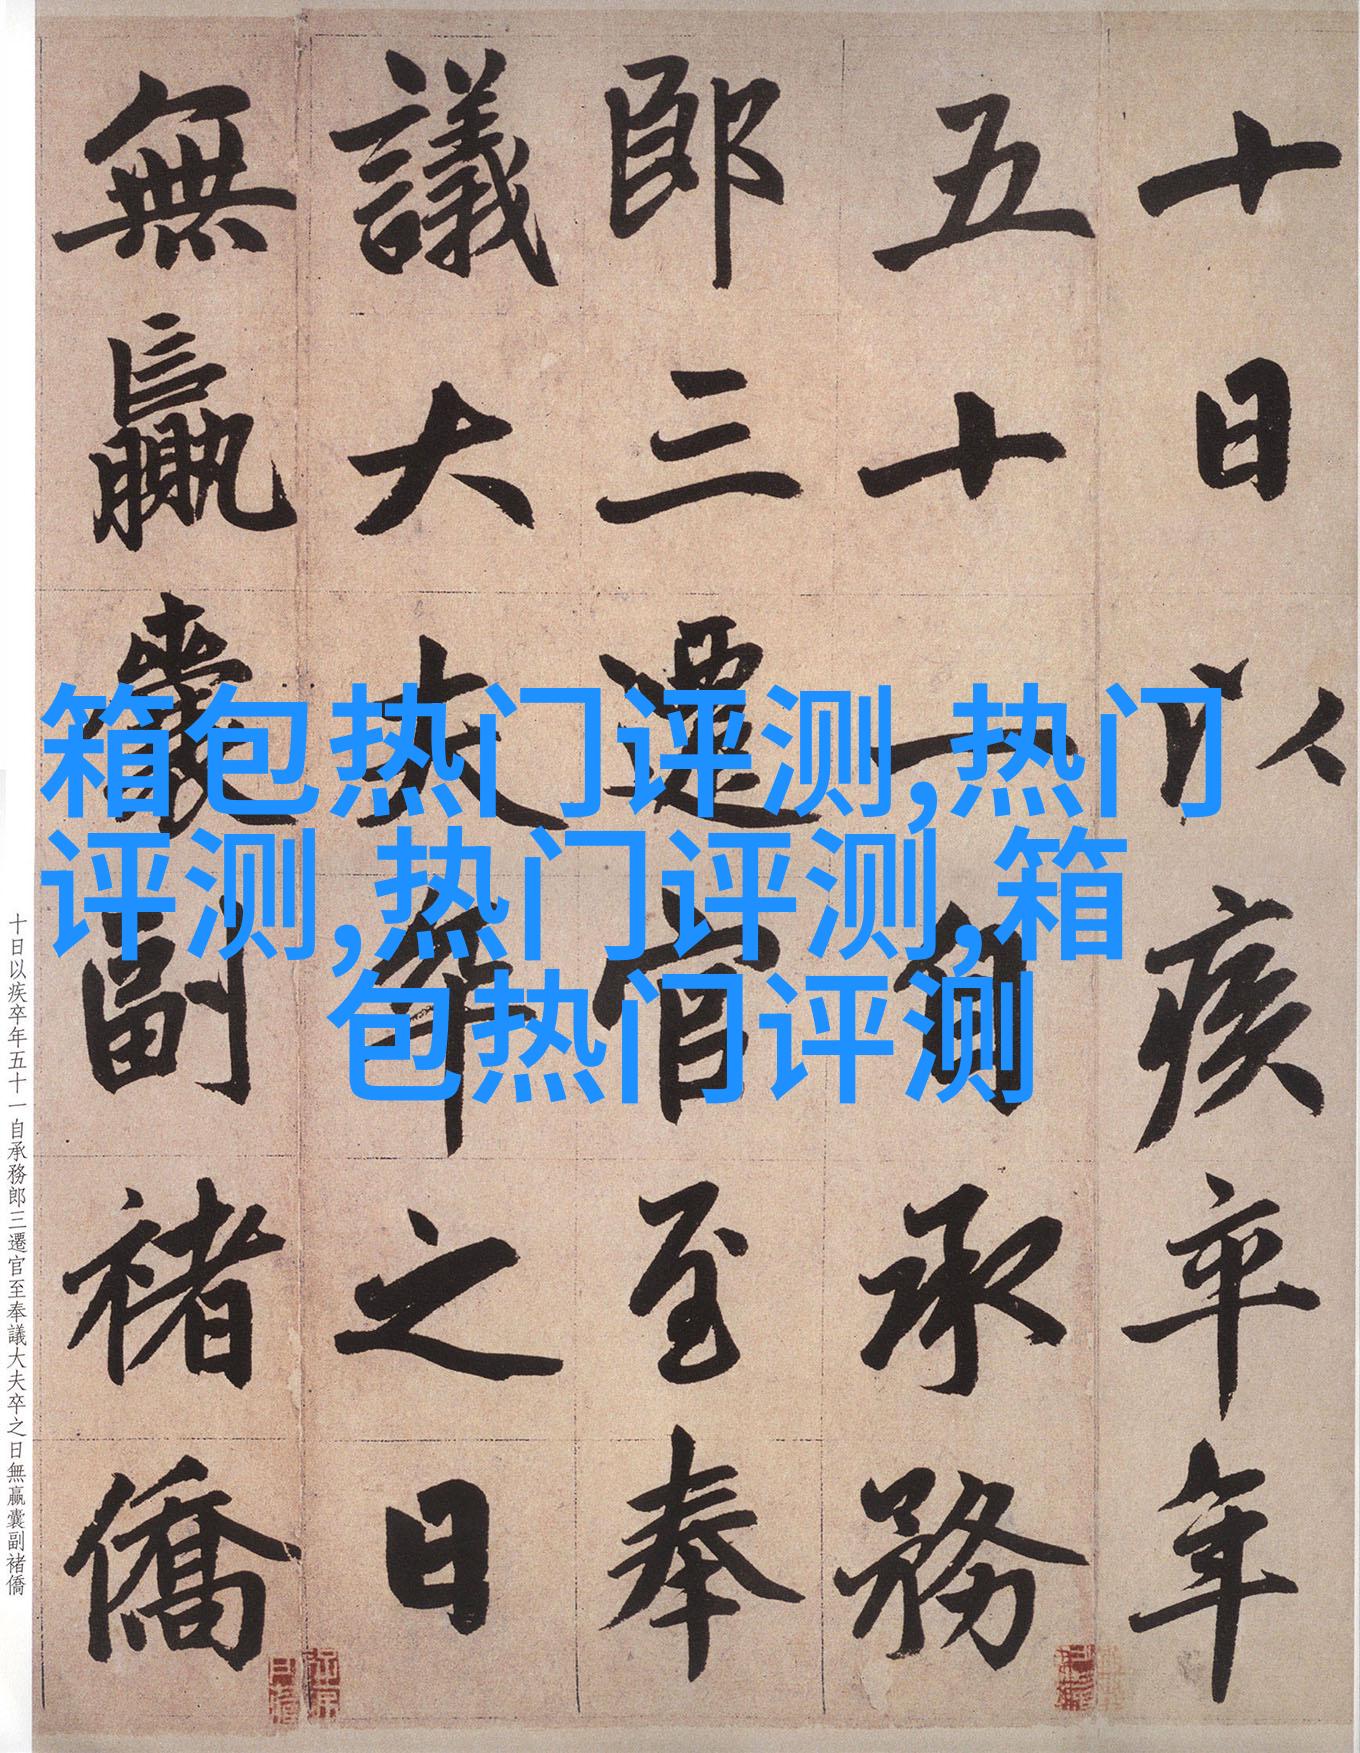 十日以疾卒年
五十一自承務
郎三遷官至奉
議大夫卒之日
無贏囊副褚
僑
箱包热门评测,热门
评测,热门评测,箱
包热门评测
十日以疾卒年五十一自承務郎三遷官至奉議大夫卒之日無贏囊副褚僑